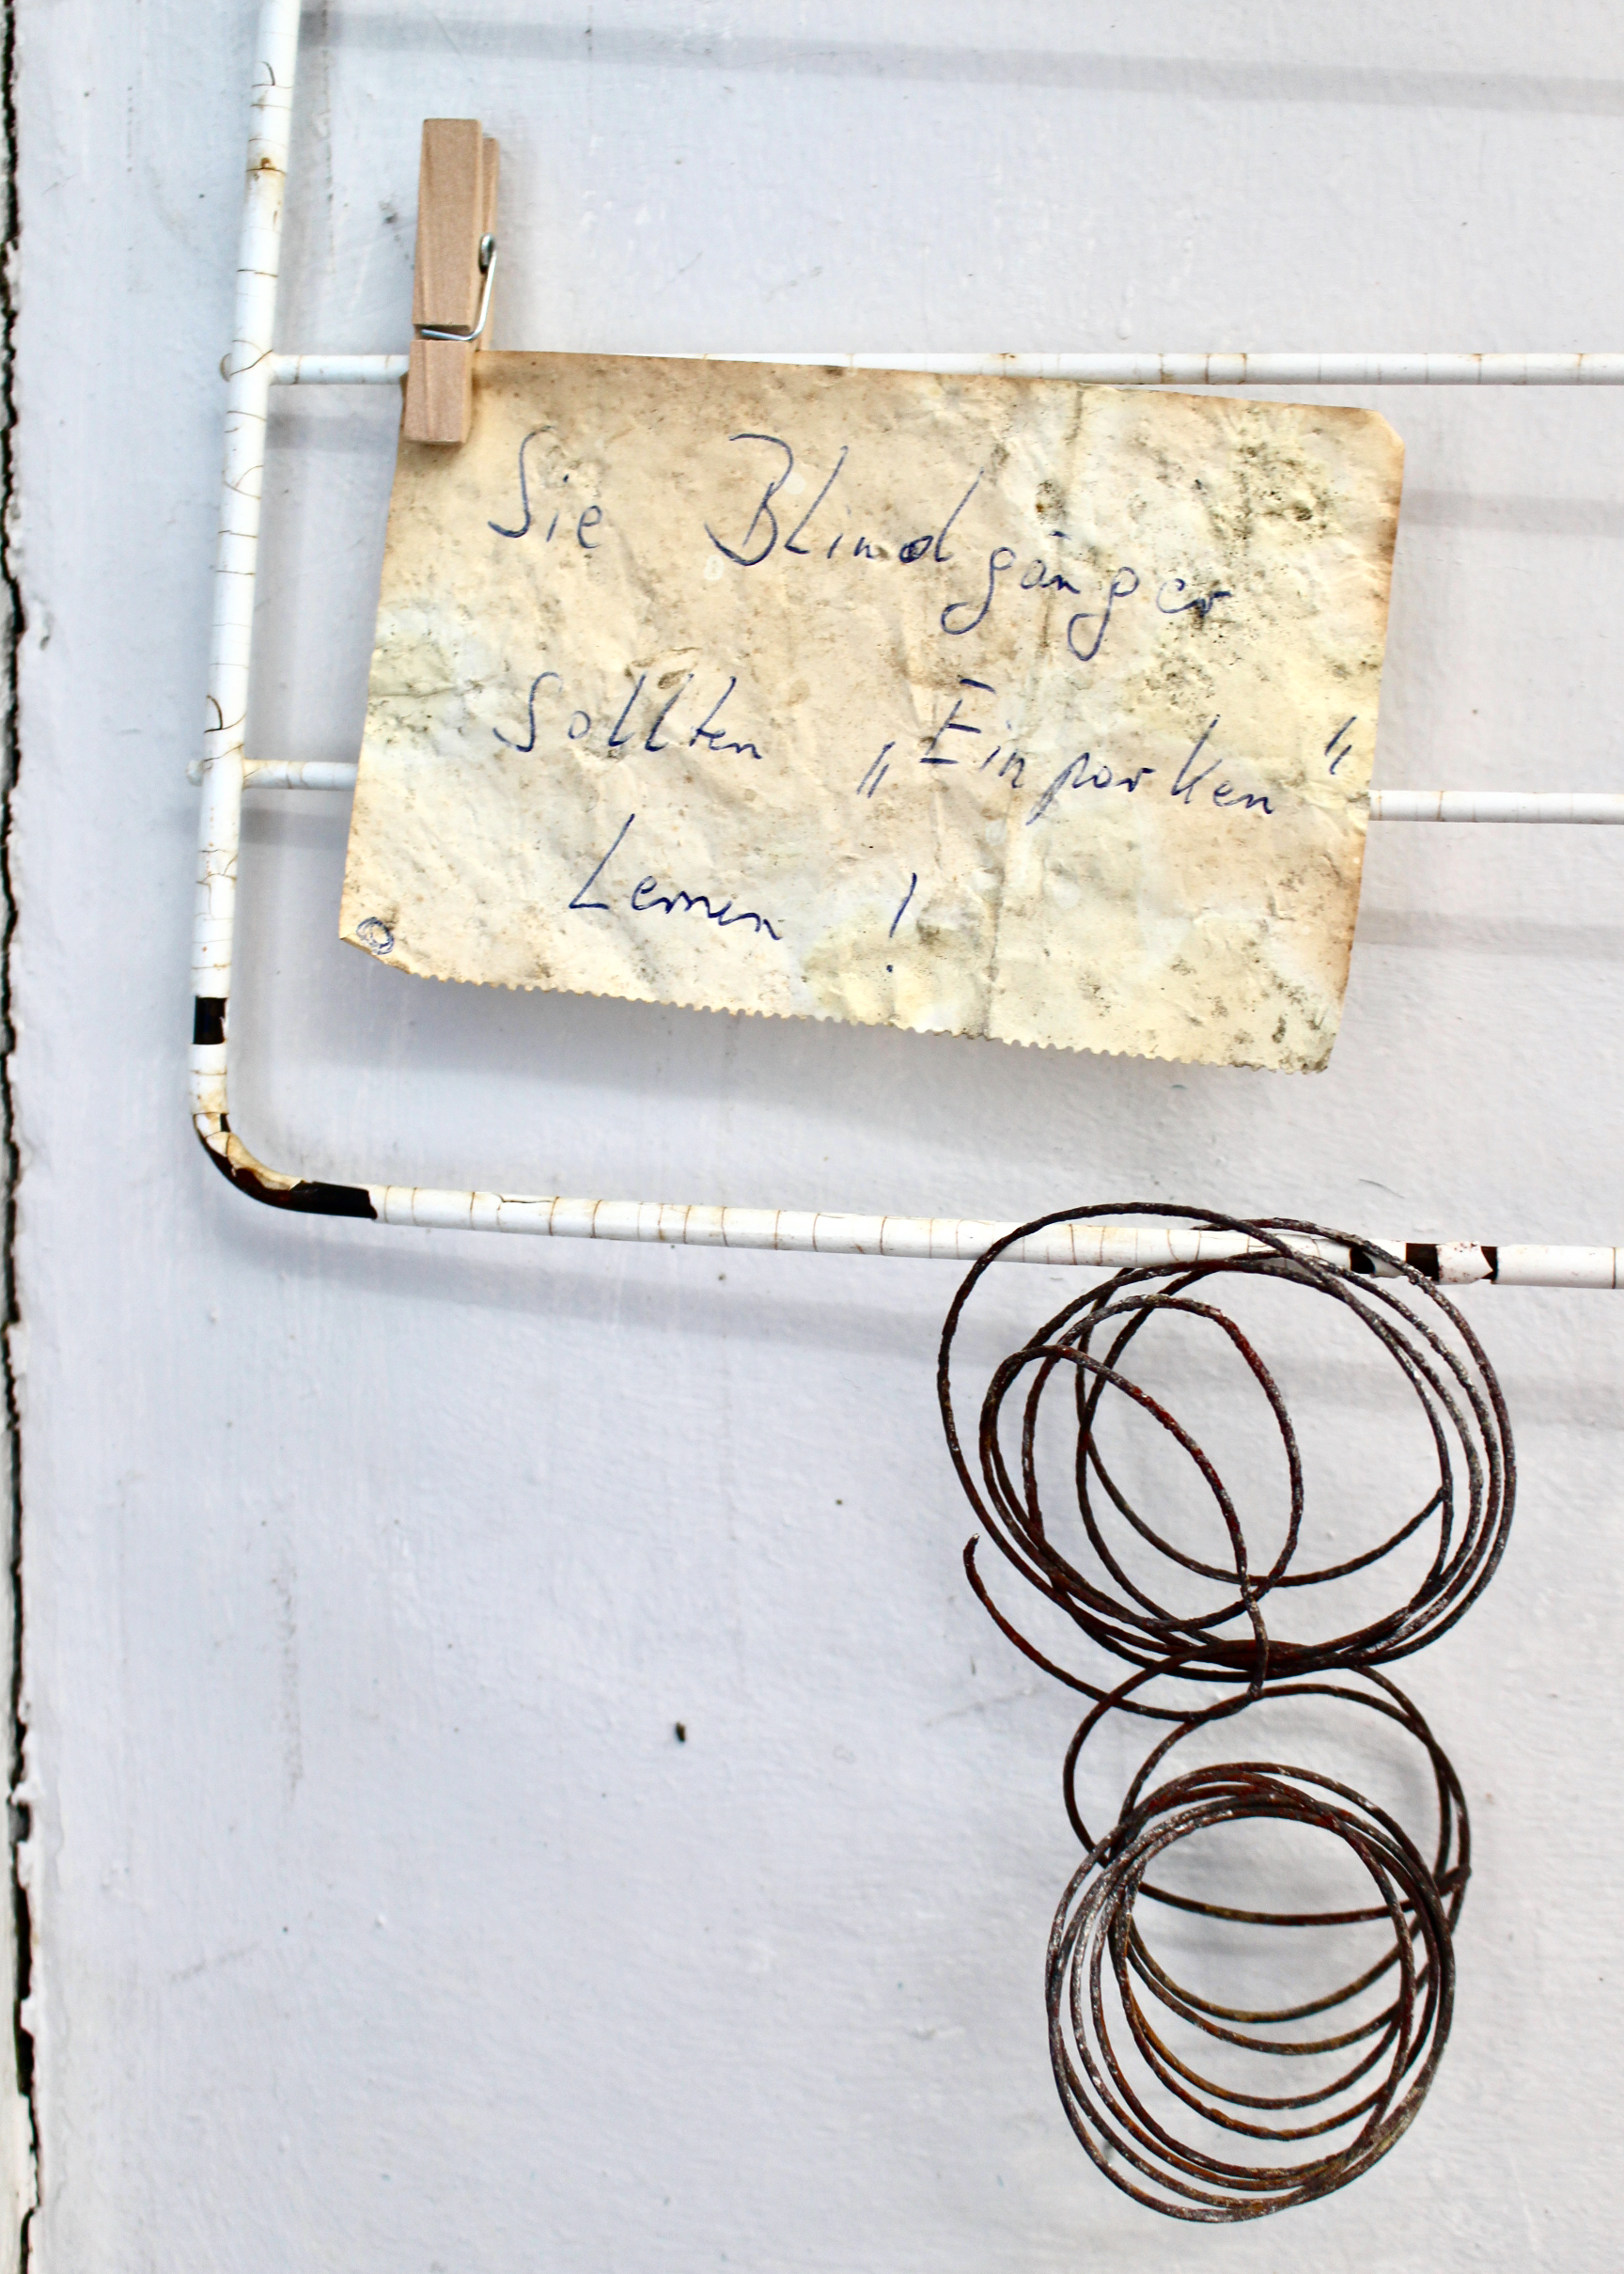 Sie Blindgänger
Sollten „Einparken“
Lernen !